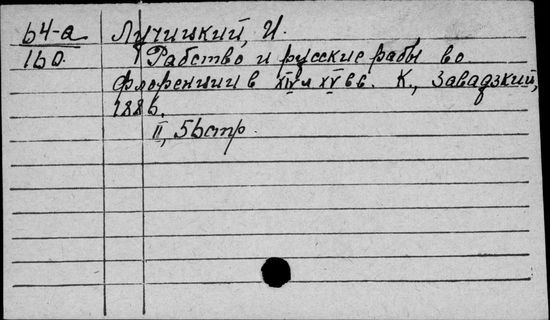 64-а Лучицкий, И.
160. Рабство и русские рабы во
Флоренции в XIV и XV вв. К., Завадзкий,
1886.
II, 56 стр.